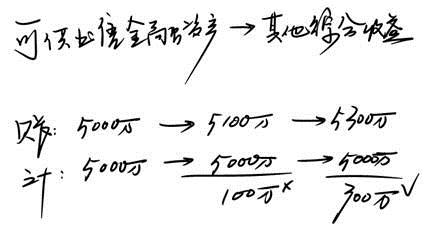 可供出售金融资产 → 其他综合收益
账: 5000万 → 5100万 → 5300万
计: 5000万 → 5000万 → 5000万
100万× 300万√